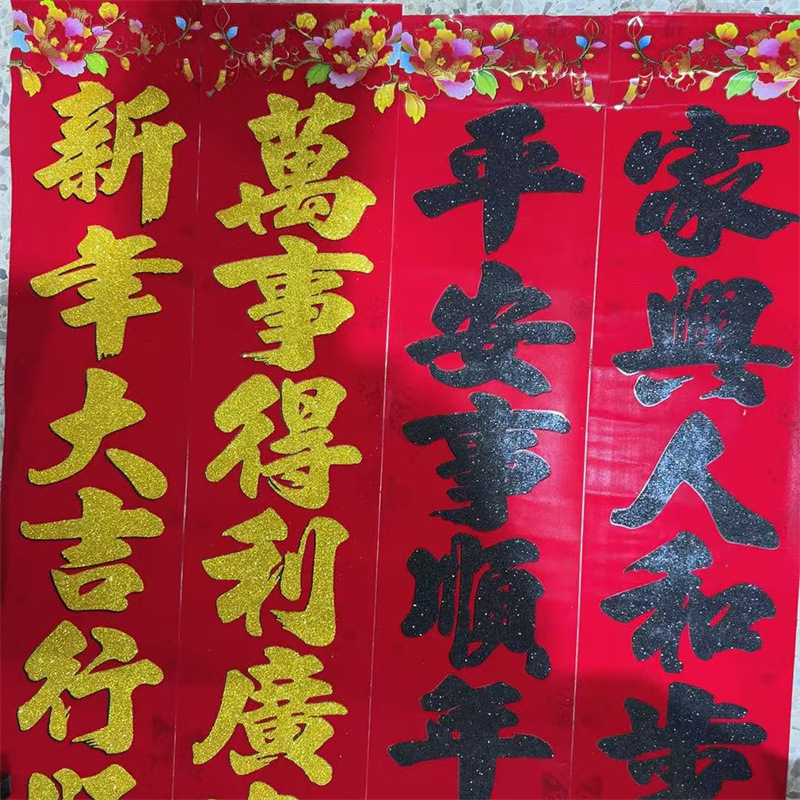 家興人和步
平安事順年
萬事得利廣
新年大吉行